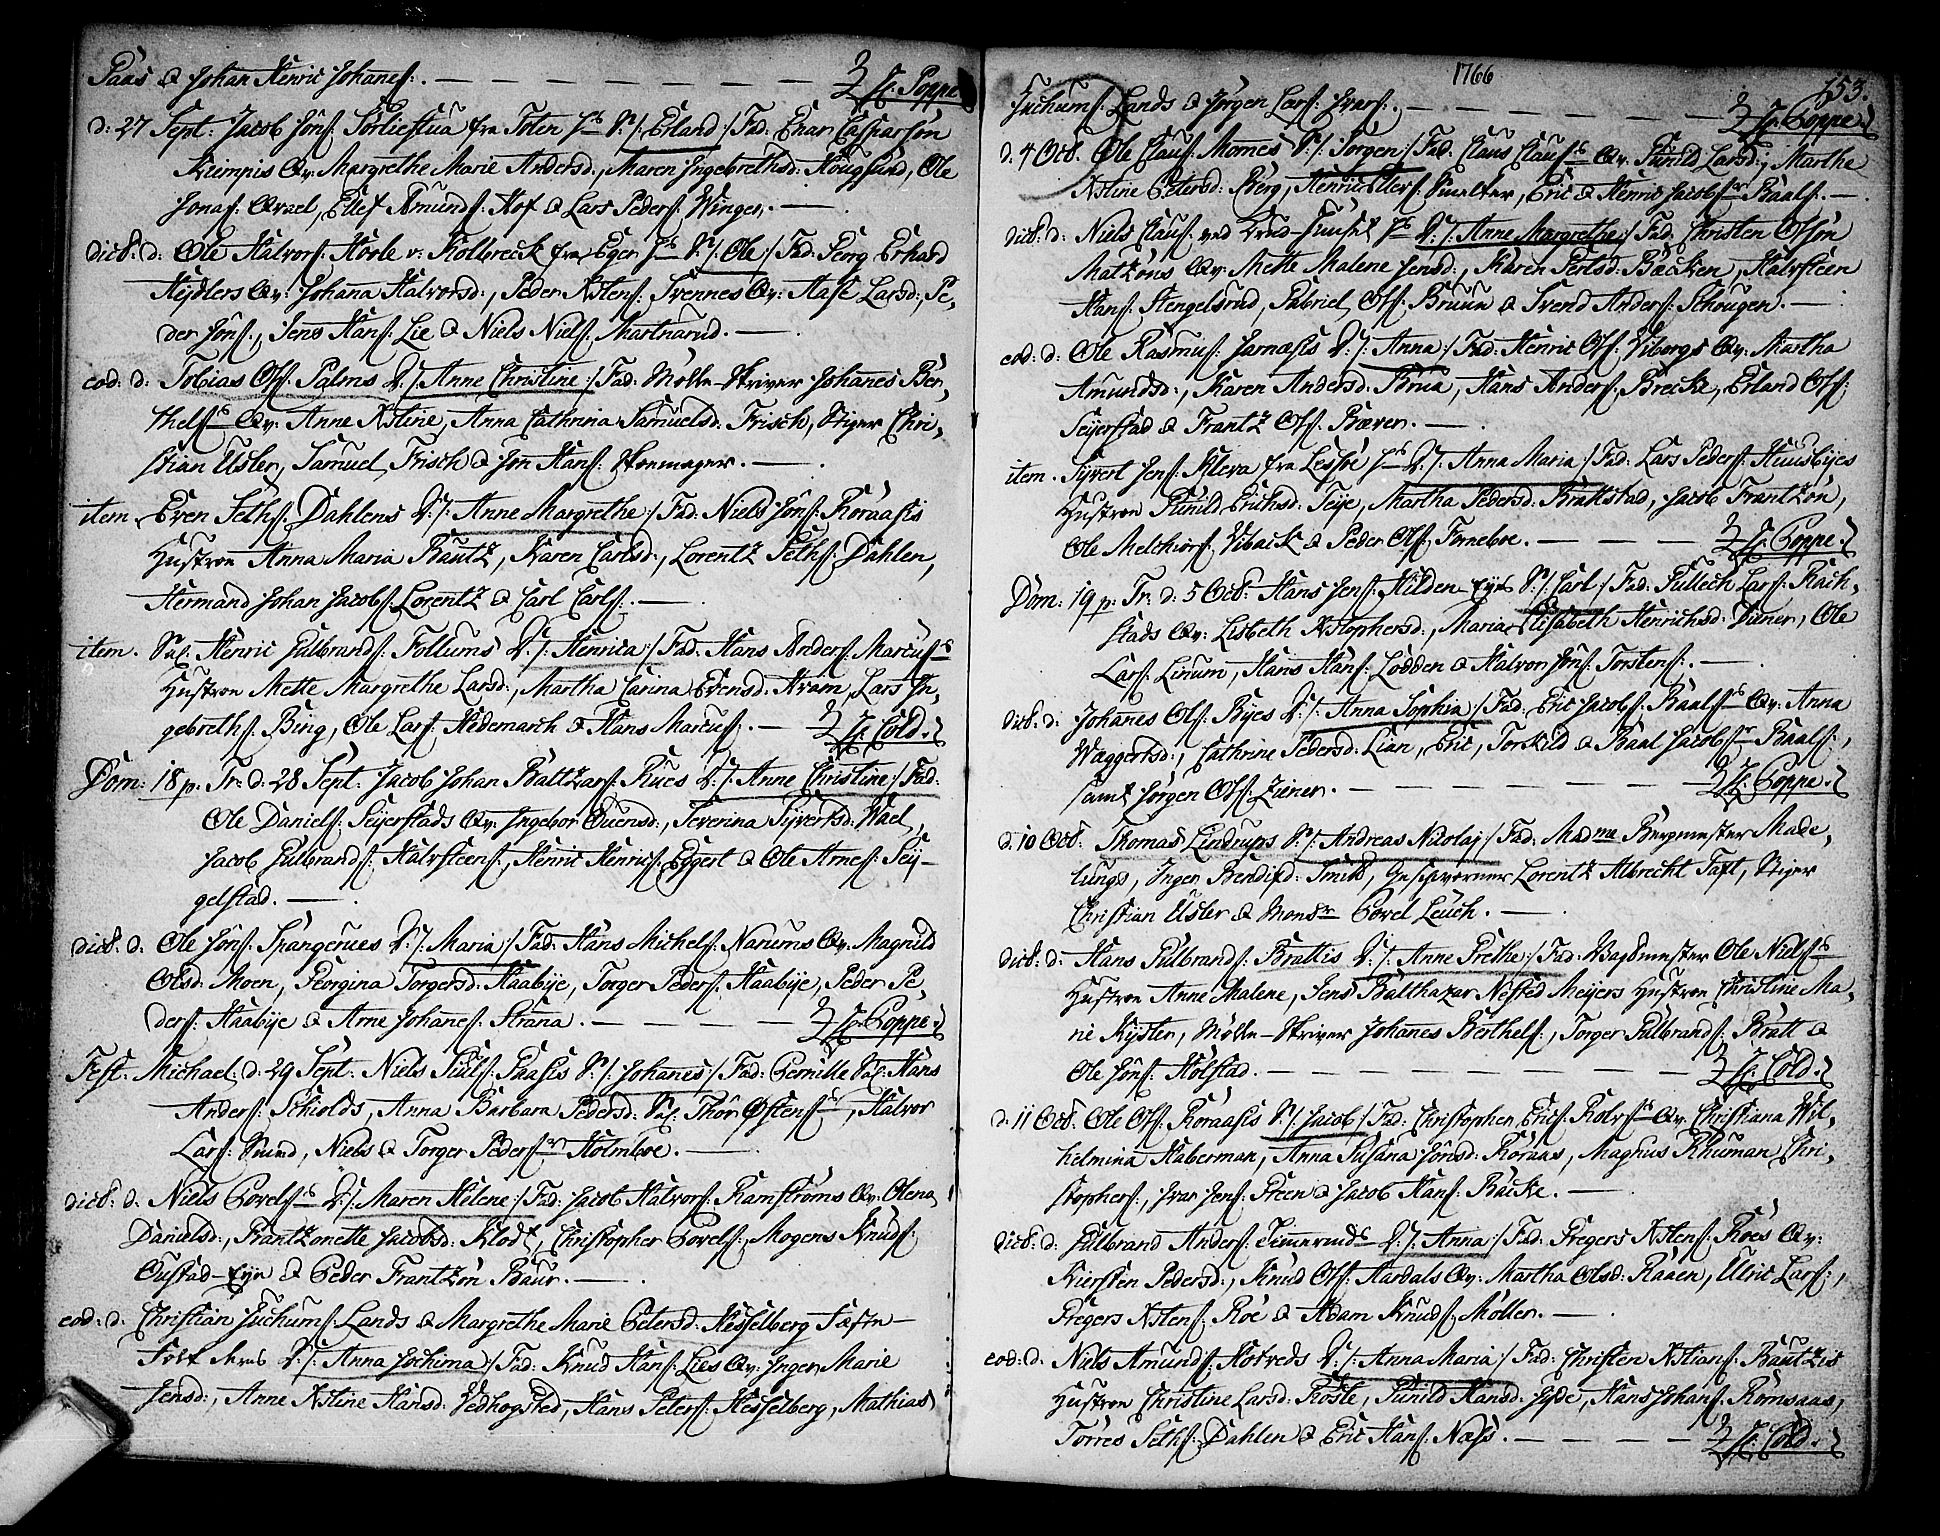 Paas & Johan Henric Johanes:. — — — — — H: Poppe
d: 27 Sept: Jacob Jons: Sörliestua fra Toten S: /: Erland :/ Fad: Enar Casparsön
Kiempis Qv: Margrethe Marie Andersd:, Maren Ingebrethsd: Hougsund, Ole
Jonas: Qvael, Ellef Amunds: Hof & Lars Peders: Winges. —
dict: d: Ole Halvors: Hovle v: Kolbreck fra Eger S: /: Ole :/ Fad: Georg Erhard
Heydlers Qv: Johana Halvorsd:, Peder Xstens: Svennes Qv: Aase Larsd:, Pe-
der Jöns:, Jens Hans: Lie & Niels Niels: Martnarud. —
eod: d: Tobias Ols: Palms D: /: Anne Christine :/ Fad: Mölle-Skriver Johanes Ber-
thels: Qv: Anne Xstine, Anna Cathrina Samuelsd: Frisch, Stiger Chri-
stian Usler, Samuel Frisch & Jon Hans: Skomager. —
item. Even Seths: Dahlens D: /: Anne Margrethe :/ Fad: Niels Jöns: Koraasis
Hustroe Anna Maria Bautz, Karen Carlsd:, Lorentz Seths: Dahlen,
Hermand Johan Jacobs: Lorentz & Carl Carls:. —
item. Sal: Henric Gulbrands: Follums D: /: Henrica :/ Fad: Hans Anders: Marcus:
Hustroe Mette Margrethe Larsd:, Martha Carina Evensd: Hvam, Lars In-
gebreths: Bing, Ole Lars: Hedemarch & Hans Marcus:. — H: Cold.
Dom: 18 p: Tr: d: 28 Sept: Jacob Johan Baltzars: Rues D: /: Anne Christine :/ Fad:
Ole Daniels: Seyerstads Qv: Ingebor Evensd:, Severina Syvertsd: Wael,
Jacob Gulbrands: Halvsteens:, Henric Henrics: Eggert & Ole Arnes: Sey-
gelstad. —
dict: d: Ole Jöns: Spangerues D: /: Maria :/ Fad: Hans Michels: Narums Qv: Magnild
Olsd: Moen, Georgina Torgersd: Haabye, Torger Peders: Haabye, Peder Pe-
ders: Haabye & Arne Johanes: Strana. — — — — H: Poppe.
Fest: Michael: d: 29 Sept: Niels Juls: Paasis S: /: Johanes :/ Fad: Pernille Sal: Hans
Anders: Schiolds, Anna Barbara Pedersd: Sal: Thor Östens:, Halvor
Lars: Smed, Niels & Torger Peders: Holmboe. —
dict: d: Niels Povels: D: /: Maren Helene :/ Fad: Jacob Halvors: Ramströms Qv: Olena
Danielsd:, Frantzonette Jacobsd: Klodt, Christopher Povels:, Mogens Knuds:
Gustad-Eye & Peder Frantzön Baur. —
eod: d: Christian Juchums: Lands & Margrethe Marie Petersd: Hesselberg
D: /: Anna Jochima :/ Fad: Knud Hans: Lies Qv: Inger Marie
Jensd:, Anne Xstine Hansd: Vedhogsted, Hans Peters: Hesselberg, Mathias
1766
153.
Juchums: Lands & Jörgen Lars: Ivars:. — — — — — H: Poppe.
d: 4 Oct: Ole Claus: Mornes S: /: Jörgen :/ Fad: Claus Claus: Qv: Gunild Larsd:, Marthe
Xstine Petersd: Berg, Henric Ellers: Smelter, Eric & Henric Jacobs: Baals:. —
dict: d: Niels Claus: ved Brud-Huuset D: /: Anne Margrethe :/ Fad: Christen Olsön
Matzöns Qv: Mette Malene Jensd:, Karen Gertsd: Bæcken, Halvsteen
Hans: Stengelsrud, Gabriel Ols: Bruun & Svend Anders: Schougen. —
eod: d: Ole Rasmus: Jarnæsis D: /: Anna :/ Fad: Henric Ols: Viborgs Qv: Martha
Amundsd:, Karen Andersd: Bórua, Hans Anders: Brecke, Erland Ols:
Seyerstad & Frantz Ols: Bæver. —
item. Syvert Jens: Kleva fra Lessöe D: /: Anna Maria :/ Fad: Lars Peders: Huusbyes
Hustroe Gunild Erichsd: Teye, Martha Pedersd: Brathstad, Jacob Frantzön,
Ole Melchiors: Viback & Peder Ols: Forneboe. — — — H: Poppe.
Dom: 19 p: Tr: d: 5 Oct: Hans Jens: Hilden-Eyes S: /: Carl :/ Fad: Gullech Lars: Rach-
stads Qv: Lisbeth Xstophersd:, Maria Elisabeth Henrichsd: Diener, Ole
Lars: Linum, Hans Hans: Lodden & Halvor Jöns: Torstens:. —
dict: d: Johanes Ols: Byes D: /: Anna Sophia :/ Fad: Eric Jacobs: Baals: Qv: Anna
Waggertsd:, Cathrine Pedersd: Lian, Eric, Torkild & Baal Jacobs: Baals:,
samt Jörgen Ols: Ziener. — — — — — H: Poppe.
d: 10 Oct: Thomas Lindrups S: /: Andreas Nicolaj :/ Fad: Madme Bergmester Made-
lungs, Inger Bendixd: Smith, Geschworner Lorentz Albrecht Taft, Stiger
Christian Usler & Monsr Povel Leuch. —
dict: d: Hans Gulbrands: Brattis D: /: Anne Grethe :/ Fad: Bagemester Ole Niels:
Hustroe Anne Malene, Jens Balthazar Nested Meyers Hustroe Christine Ma-
rie Kyster, Mölle-Skriver Johanes Berthels:, Torger Gulbrands: Bratt &
Ole Jöns: Holstad. — — — — — H: Cold.
d: 11 Oct: Ole Ols: Koraasis S: /: Jacob :/ Fad: Christopher Erics: Rolvs: Qv: Christiana Wil-
helmina Haberman, Anna Susana Jönsd: Koraas, Maghus Rhuman Chri-
stophers:, Ivar Jens: Green & Jacob Hans: Bache. —
dict: d: Gulbrand Anders: Simeruds D: /: Anna :/ Fad: Gregers Xstens: Roes Qv:
Kiersten Pedersd:, Knud Ols: Aardals Qv: Martha Olsd: Raaen, Ulric Lars:,
Gregers Xstens: Roe & Adam Knuds: Möller. —
eod: d: Niels Amunds: Hotveds D: /: Anna Maria :/ Fad: Christen Xstians: Bautzis
Hustroe Christine Larsd: Foste, Gunild Hansd: Hyde, Hans Johans: Romsaas,
Torres Seths: Dahlen & Eric Hans: Næss. — — — — H: Cold.